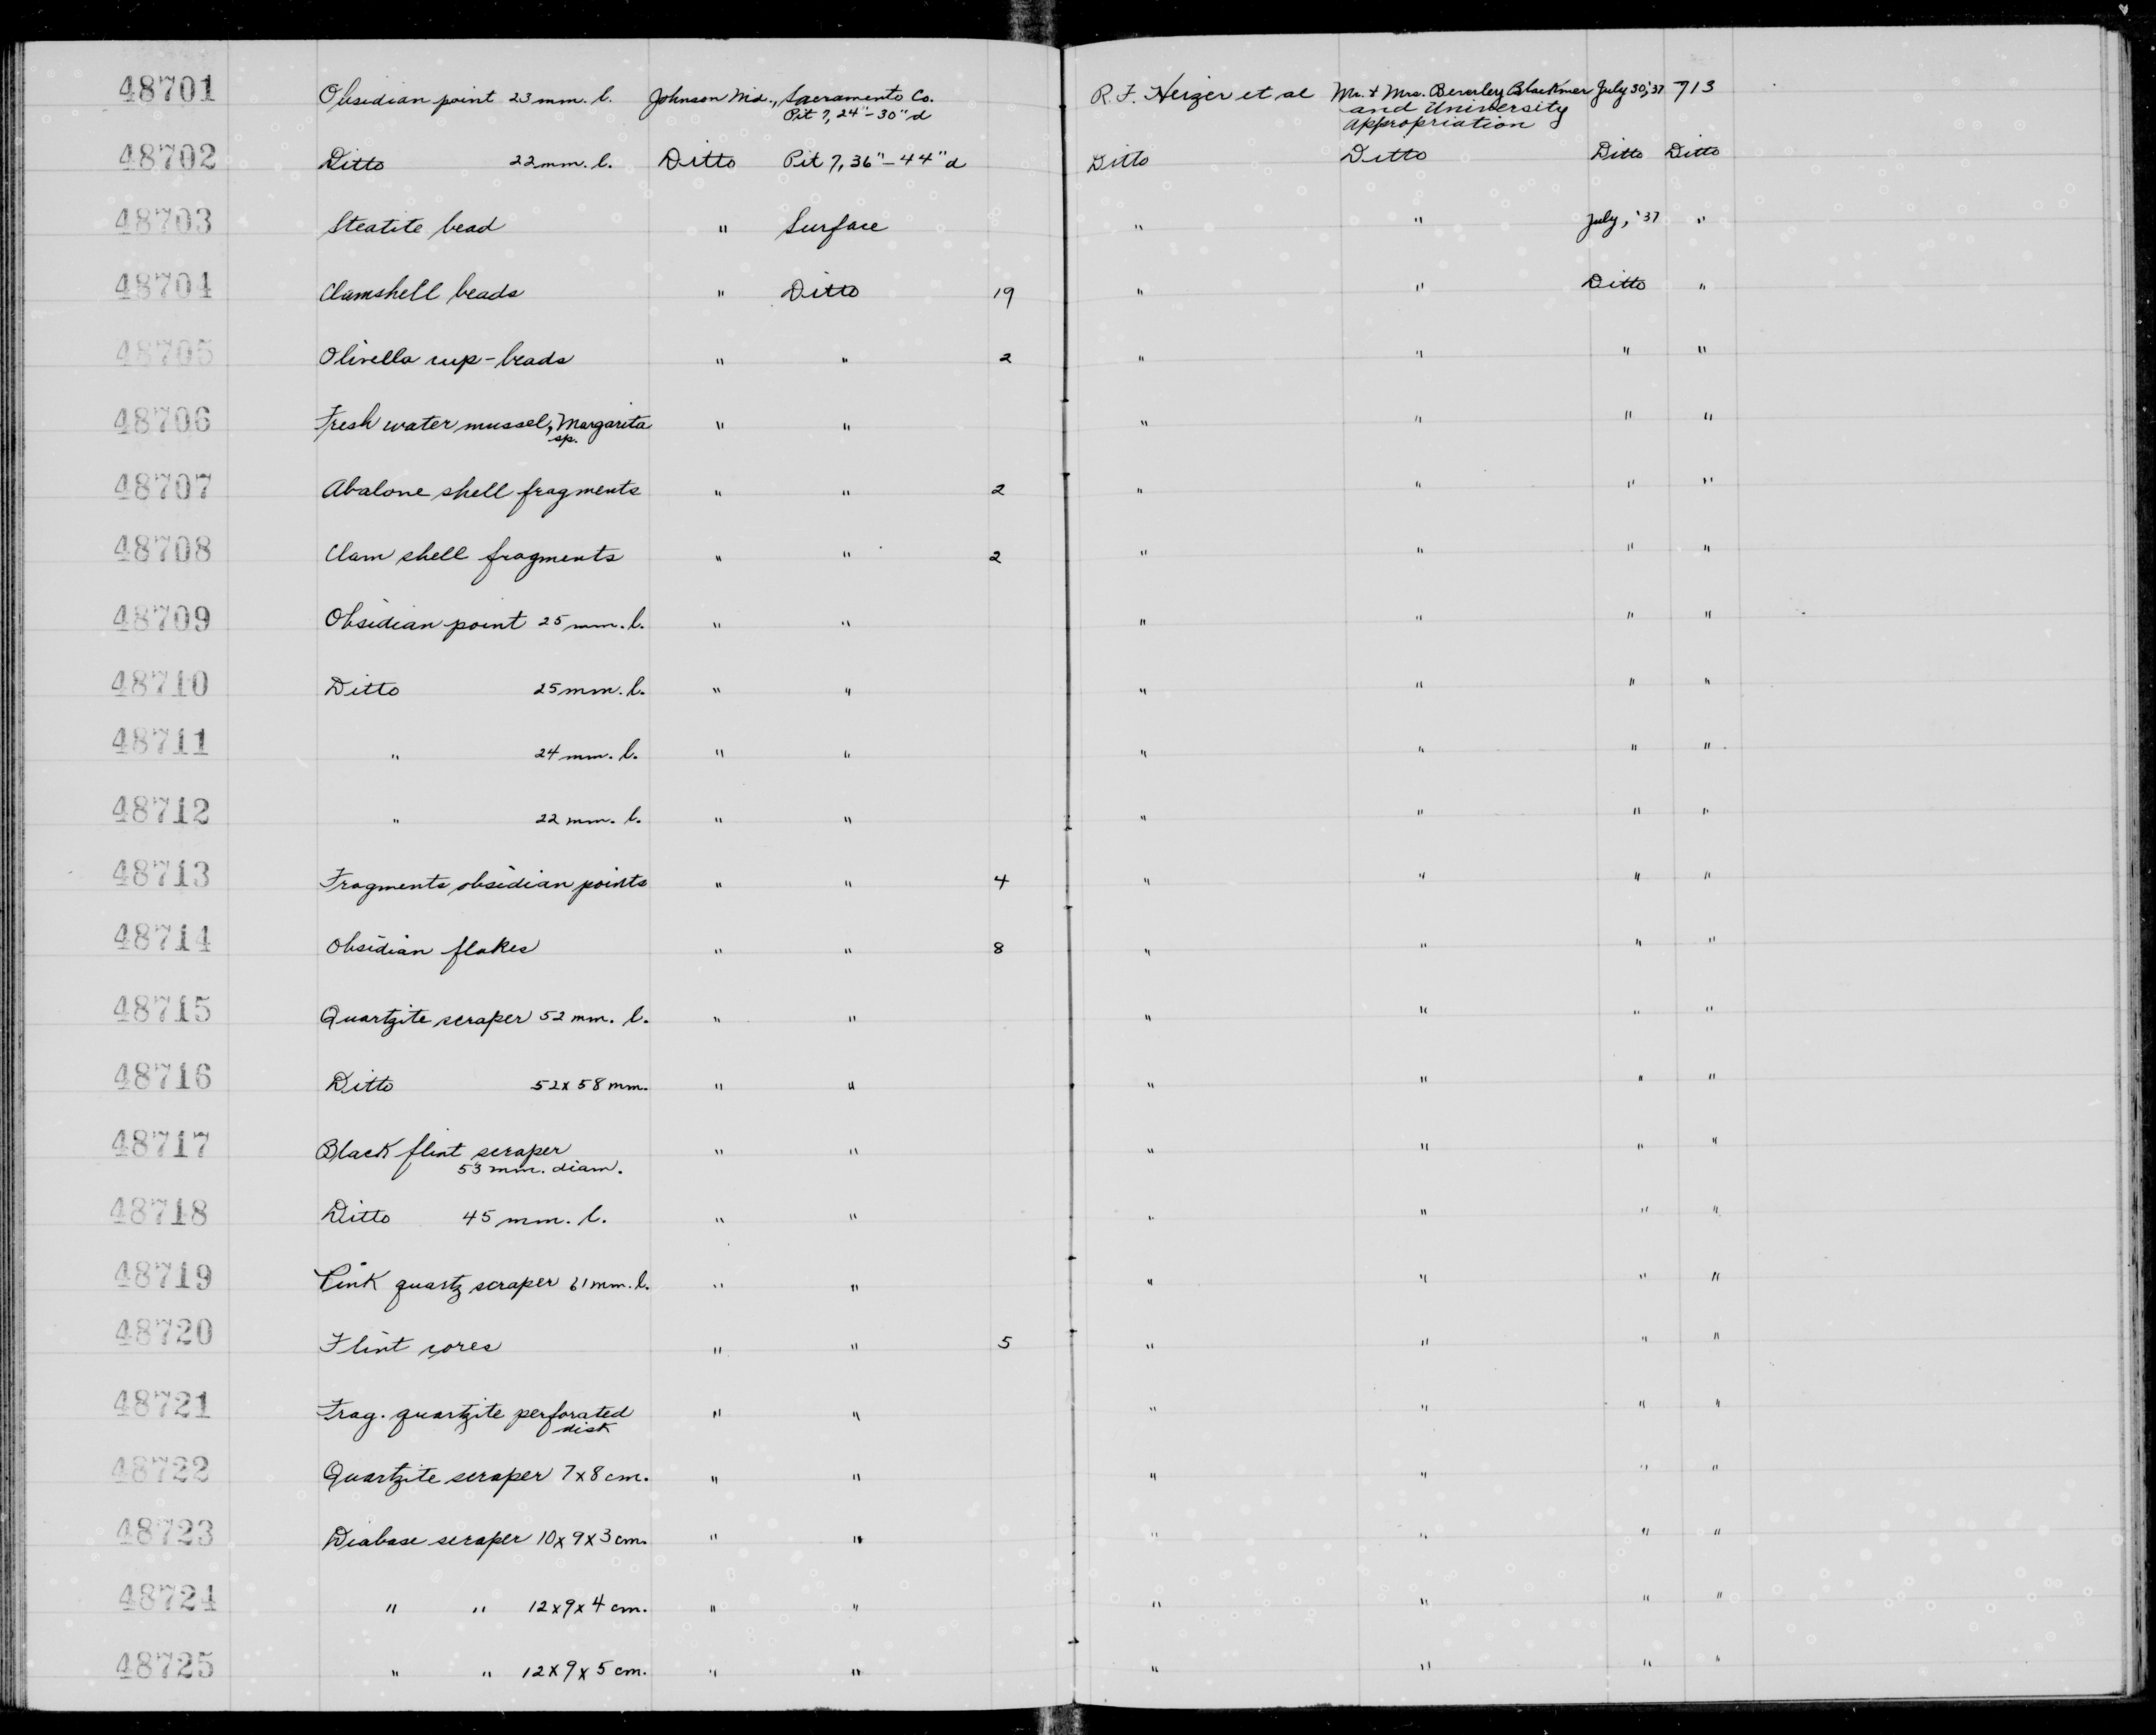 48701 Obsidian point 23 mm. l. Johnson Md., Sacramento Co. R. F. Heizer et al Mr. + Mrs. Beverley Blackmer July 30, '37 713
Pit 7, 24"-30" d and University
Appropriation
48702 Ditto 22 mm. l. Ditto Pit 7, 36"-44" d Ditto Ditto Ditto Ditto
48703 Steatite bead " Surface " " July, '37 "
48704 Clamshell beads " Ditto 19 " " Ditto "
48705 Olivella cup-beads " " 2 " " " "
48706 Fresh water mussel, Margarita " " " " " "
sp.
48707 Abalone shell fragments " " 2 " " " "
48708 Clam shell fragments " " 2 " " " "
48709 Obsidian point 25 mm. l. " " " " " "
48710 Ditto 25 mm. l. " " " " " "
48711 " 24 mm. l. " " " " " "
48712 " 22 mm. l. " " " " " "
48713 Fragments obsidian points " " 4 " " " "
48714 Obsidian flakes " " 8 " " " "
48715 Quartzite scraper 52 mm. l. " " " " " "
48716 Ditto 52 x 58 mm. " " " " " "
48717 Black flint scraper " " " " " "
53 mm. diam.
48718 Ditto 45 mm. l. " " " " " "
48719 Pink quartz scraper 61 mm. l. " " " " " "
48720 Flint cores " " 5 " " " "
48721 Frag. quartzite perforated " " " " " "
disk
48722 Quartzite scraper 7 x 8 cm. " " " " " "
48723 Diabase scraper 10 x 9 x 3 cm. " " " " " "
48724 " " 12 x 9 x 4 cm. " " " " " "
48725 " " 12 x 9 x 5 cm. " " " " " "